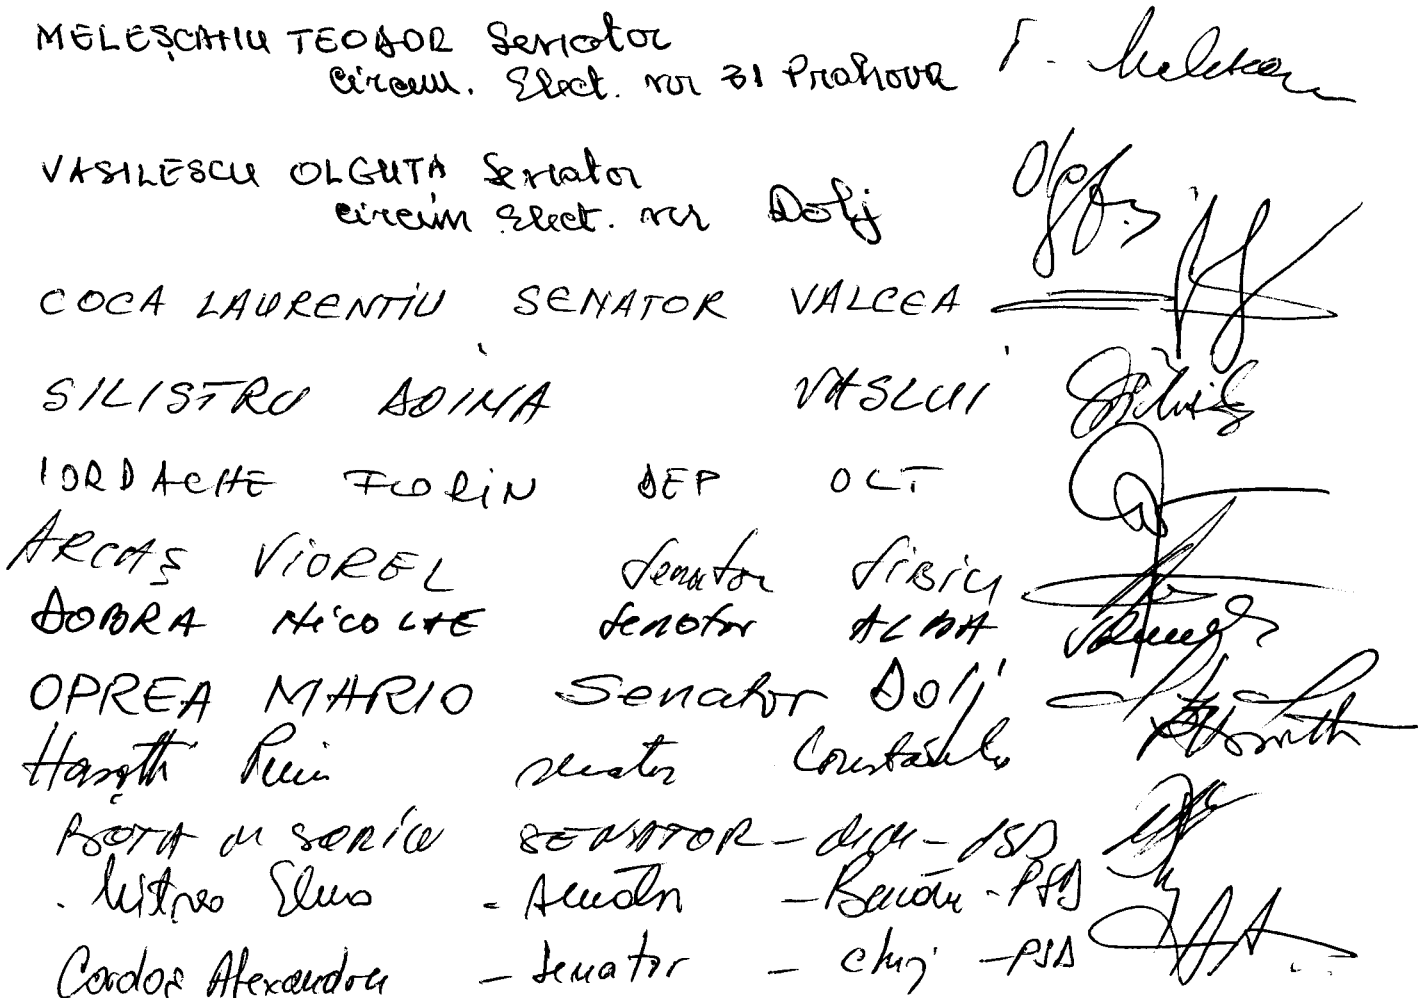 MELEȘCANU TEODOR Senator
Circum. Elect. nr 31 Prahova
VASILESCU OLGUTA Senator
circum Elect. nr Dolj
COCA LAURENTIU SENATOR VALCEA
SILISTRU DOINA VASLUI
IORDACHE FLORIN DEP OLT
ARCAȘ VIOREL Senator Sibiu
DOBRA NICOLAE Senator ALBA
OPREA MARIO Senator Dolj
senator Constanța
BOTA M SORIN SENATOR - - PSD
Mitrea Elena - Senator - Bacău - PSD
Cordoș Alexandru - Senator - Cluj - PSD